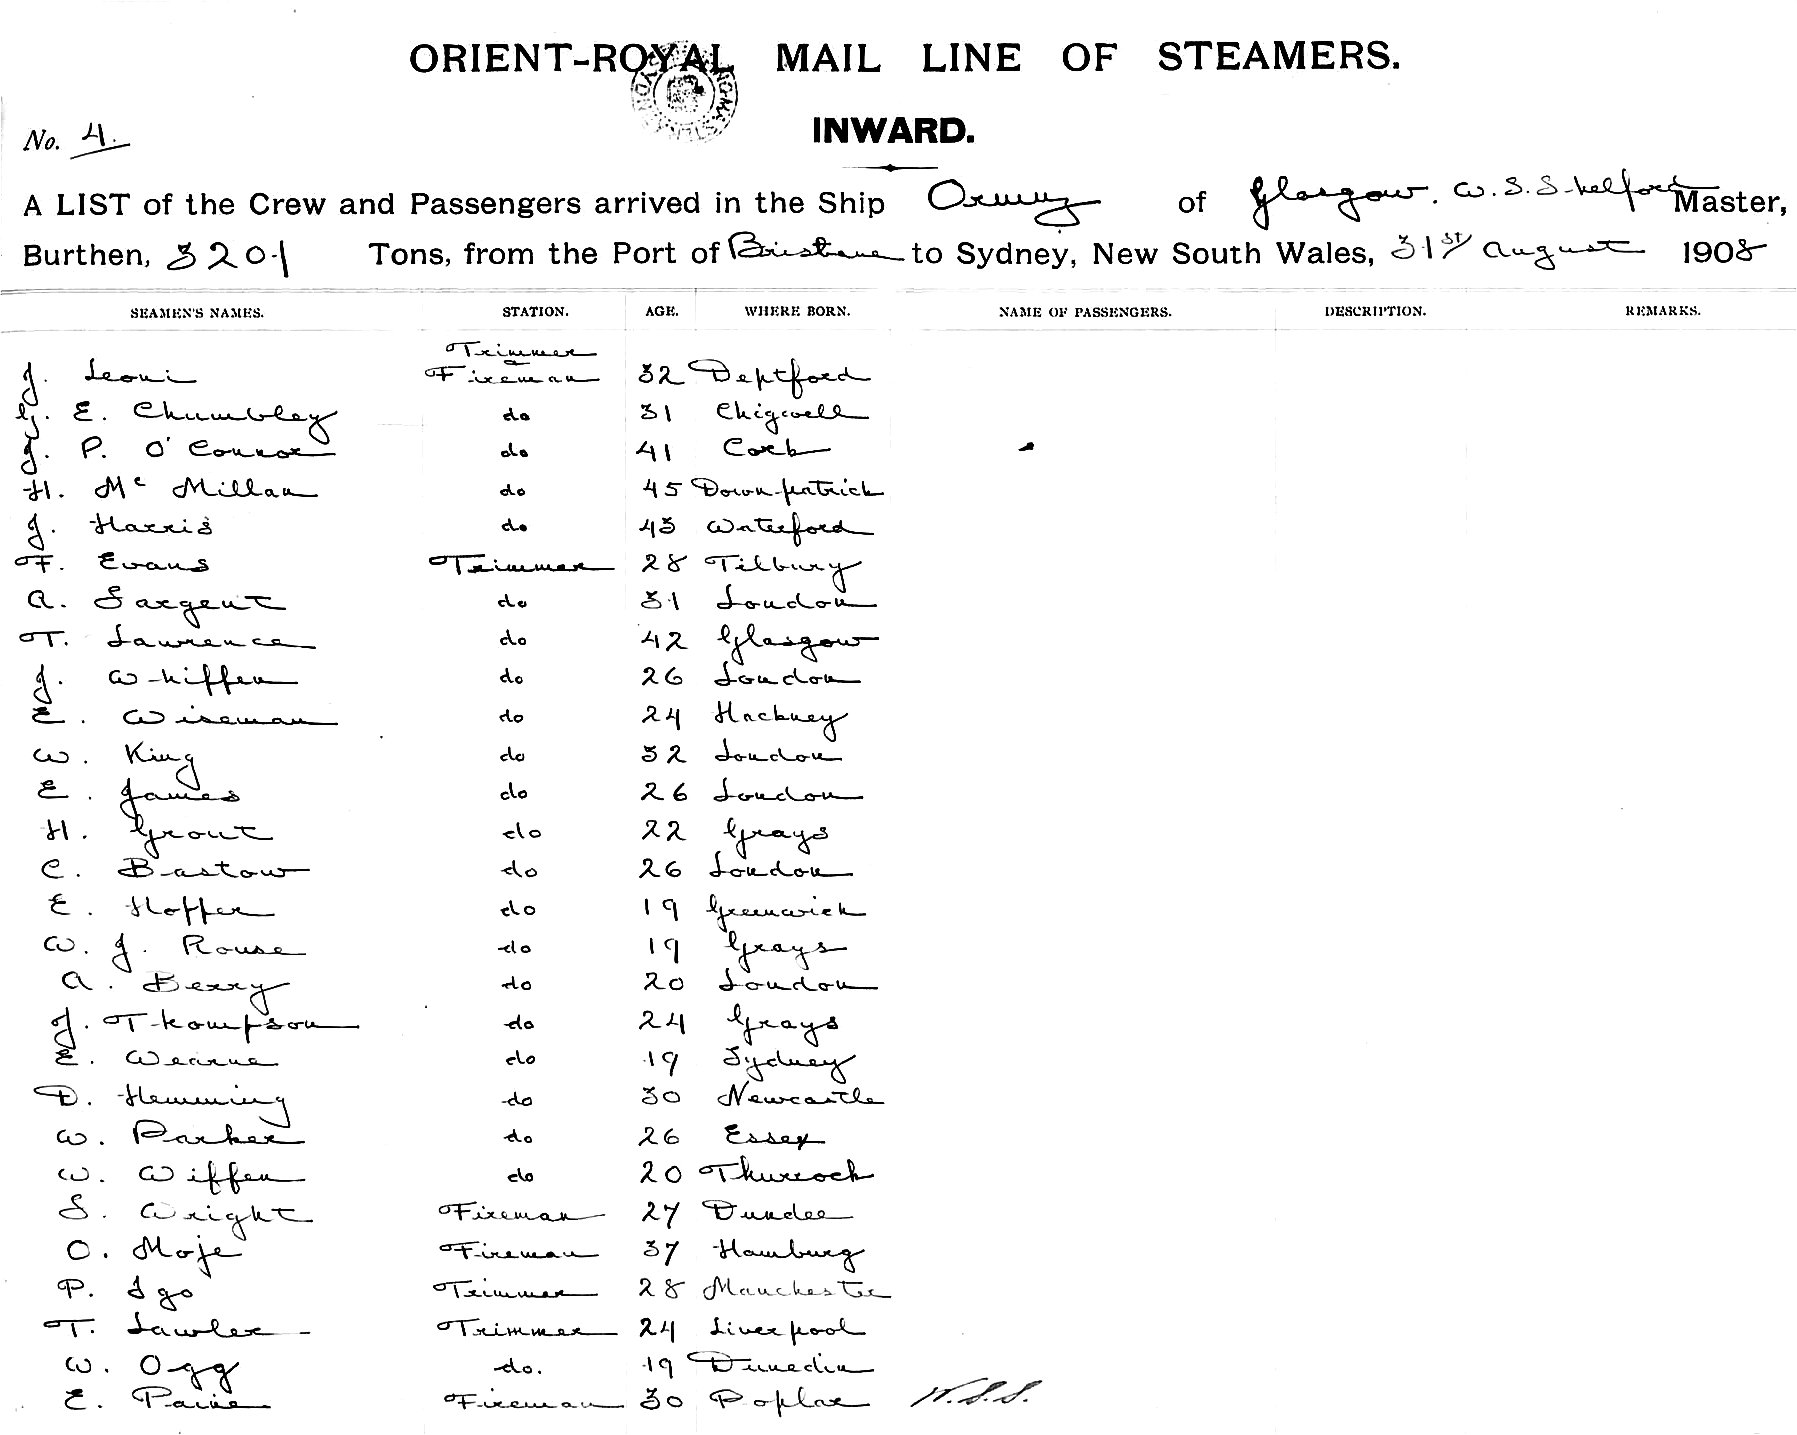 ORIENT-ROYAL MAIL LINE OF STEAMERS.
INWARD.
No. 4.
A LIST of the Crew and Passengers arrived in the Ship Ormuz of Glasgow. W. S. Shelford Master,
Burthen, 3201 Tons, from the Port of Brisbane to Sydney, New South Wales, 31st August 1908
SEAMEN'S NAMES. STATION. AGE. WHERE BORN. NAME OF PASSENGERS. DESCRIPTION. REMARKS.
Trimmer
J. Leoni Fireman 32 Deptford
G. E. Chumbley do 31 Chigwell
J. P. O'Connor do 41 Cork
H. Mc Millan do 45 Downpatrick
J. Harris do 43 Waterford
F. Evans Trimmer 28 Tilbury
A. Sargent do 31 London
T. Lawrence do 42 Glasgow
J. Whiffen do 26 London
E. Wiseman do 24 Hackney
W. King do 32 London
E. James do 26 London
H. Grout do 22 Grays
C. Bastow do 26 London
E. Hoffer do 19 Greenwich
W. J. Rouse do 19 Grays
A. Berry do 20 London
J. Thompson do 24 Grays
E. Wearne do 19 Sydney
D. Hemming do 30 Newcastle
W. Parker do 26 Essex
W. Wiffen do 20 Thurrock
S. Wright Fireman 27 Dundee
O. Moje Fireman 37 Hamburg
P. Igo Trimmer 28 Manchester
T. Lawler Trimmer 24 Liverpool
W. Ogg do. 19 Dunedin
E. Paine Fireman 30 Poplar W.S.S.